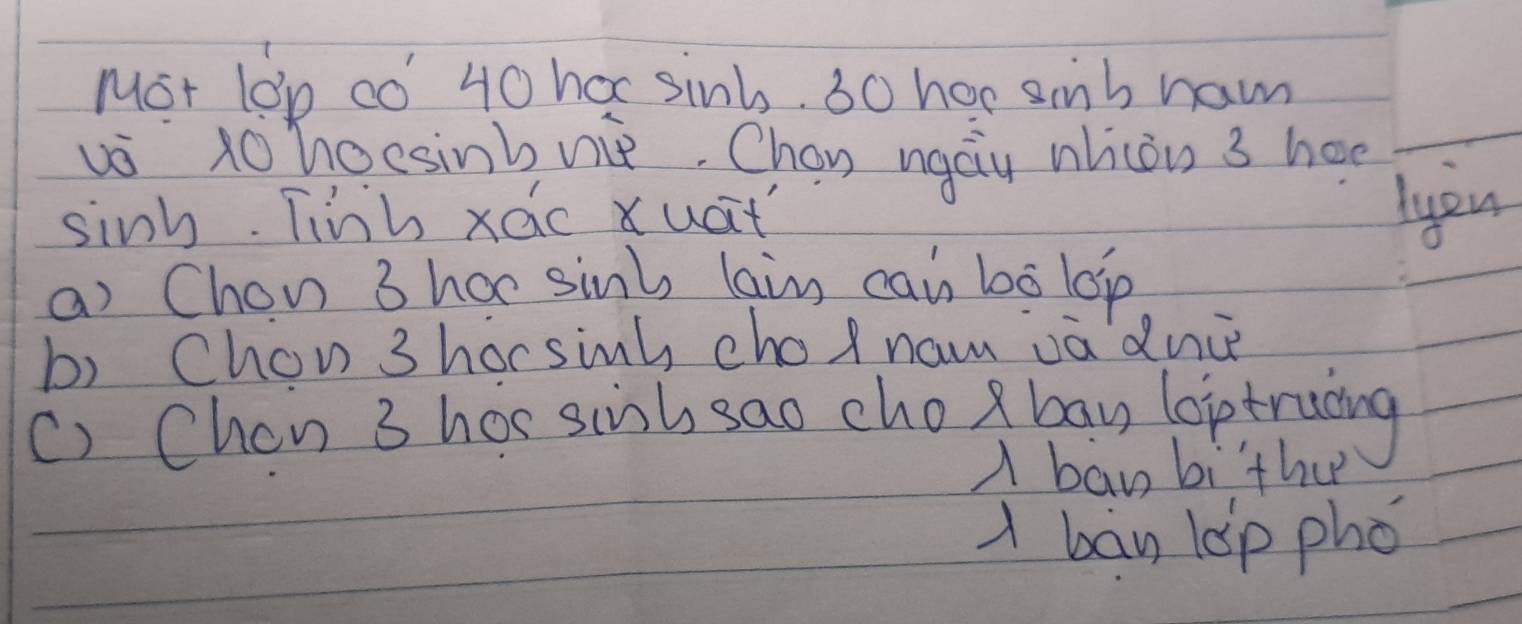 Một lớp có 40 học sinh. 30 học sinh nam
và 10 học sinh nữ. Chọn ngẫy nhiên 3 học
sinh. Tính xác xuất
lyện
a) Chọn 3 học sinh làm cán bộ lớp
b) Chọn 3 học sinh cho 1 nam và 2 nữ
c) Chọn 3 học sinh sao cho 1 bạn lớp trưởng
1 bạn bí thư
1 bạn lớp phó